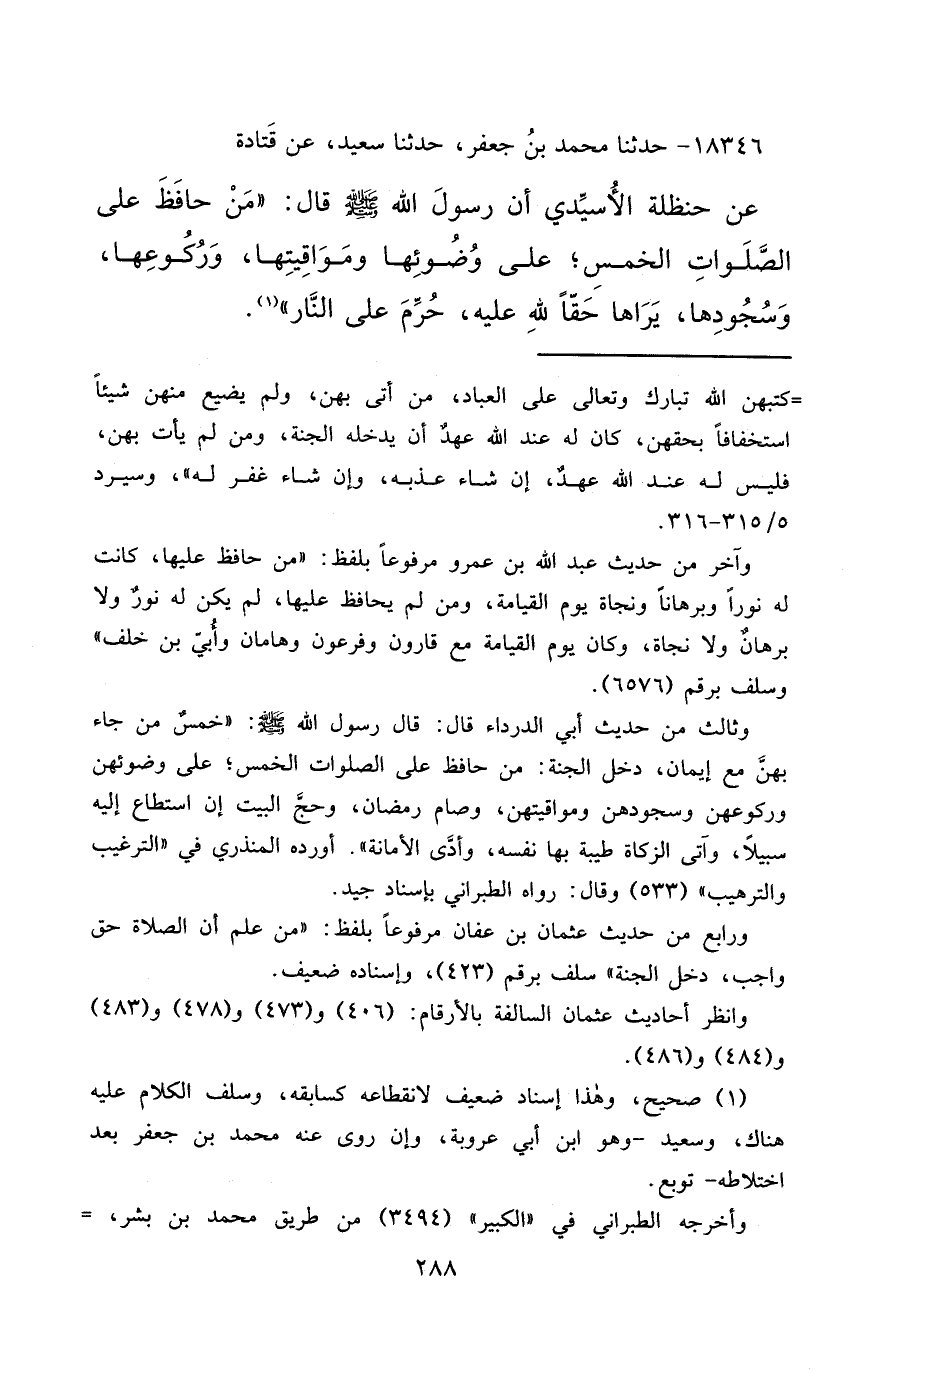 ١٨٣٤٦- حدثنا محمد بنُ جعفر، حدثنا سعيد، عن قَتادة
عن حنظلة الأُسيِّدي أن رسولَ الله ﷺ قال: «مَنْ حافَظَ على
الصَّلَواتِ الخمسِ؛ على وُضُوئِها ومَوَاقِيتِها، وَرُكُوعِها،
وَسُجُودِها، يَرَاها حَقّاً للهِ عليه، حُرِّمَ على النَّار»(١).
=كتبهن الله تبارك وتعالى على العباد، من أتى بهن، ولم يضيع منهن شيئاً
استخفافاً بحقهن، كان له عند الله عهدٌ أن يدخله الجنة، ومن لم يأت بهن،
فليس له عند الله عهدٌ، إن شاء عذبه، وإن شاء غفر له»، وسيرد
٥/ ٣١٥-٣١٦.
وآخر من حديث عبد الله بن عمرو مرفوعاً بلفظ: «من حافظ عليها، كانت
له نوراً وبرهاناً ونجاة يوم القيامة، ومن لم يحافظ عليها، لم يكن له نورٌ ولا
برهانٌ ولا نجاة، وكان يوم القيامة مع قارون وفرعون وهامان وأُبيّ بن خلف»
وسلف برقم (٦٥٧٦).
وثالث من حديث أبي الدرداء قال: قال رسول الله ﷺ: «خمسٌ من جاء
بهنَّ مع إيمان، دخل الجنة: من حافظ على الصلوات الخمس؛ على وضوئهن
وركوعهن وسجودهن ومواقيتهن، وصام رمضان، وحجَّ البيت إن استطاع إليه
سبيلاً، وآتى الزكاة طيبة بها نفسه، وأدَّى الأمانة». أورده المنذري في «الترغيب
والترهيب» (٥٣٣) وقال: رواه الطبراني بإسناد جيد.
ورابع من حديث عثمان بن عفان مرفوعاً بلفظ: «من علم أن الصلاة حق
واجب، دخل الجنة» سلف برقم (٤٢٣)، وإسناده ضعيف.
وانظر أحاديث عثمان السالفة بالأرقام: (٤٠٦) و(٤٧٣) و(٤٧٨) و(٤٨٣)
و(٤٨٤) و(٤٨٦).
(١) صحيح، وهٰذا إسناد ضعيف لانقطاعه كسابقه، وسلف الكلام عليه
هناك، وسعيد -وهو ابن أبي عروبة، وإن روى عنه محمد بن جعفر بعد
اختلاطه- توبع.
وأخرجه الطبراني في «الكبير» (٣٤٩٤) من طريق محمد بن بشر، =
٢٨٨